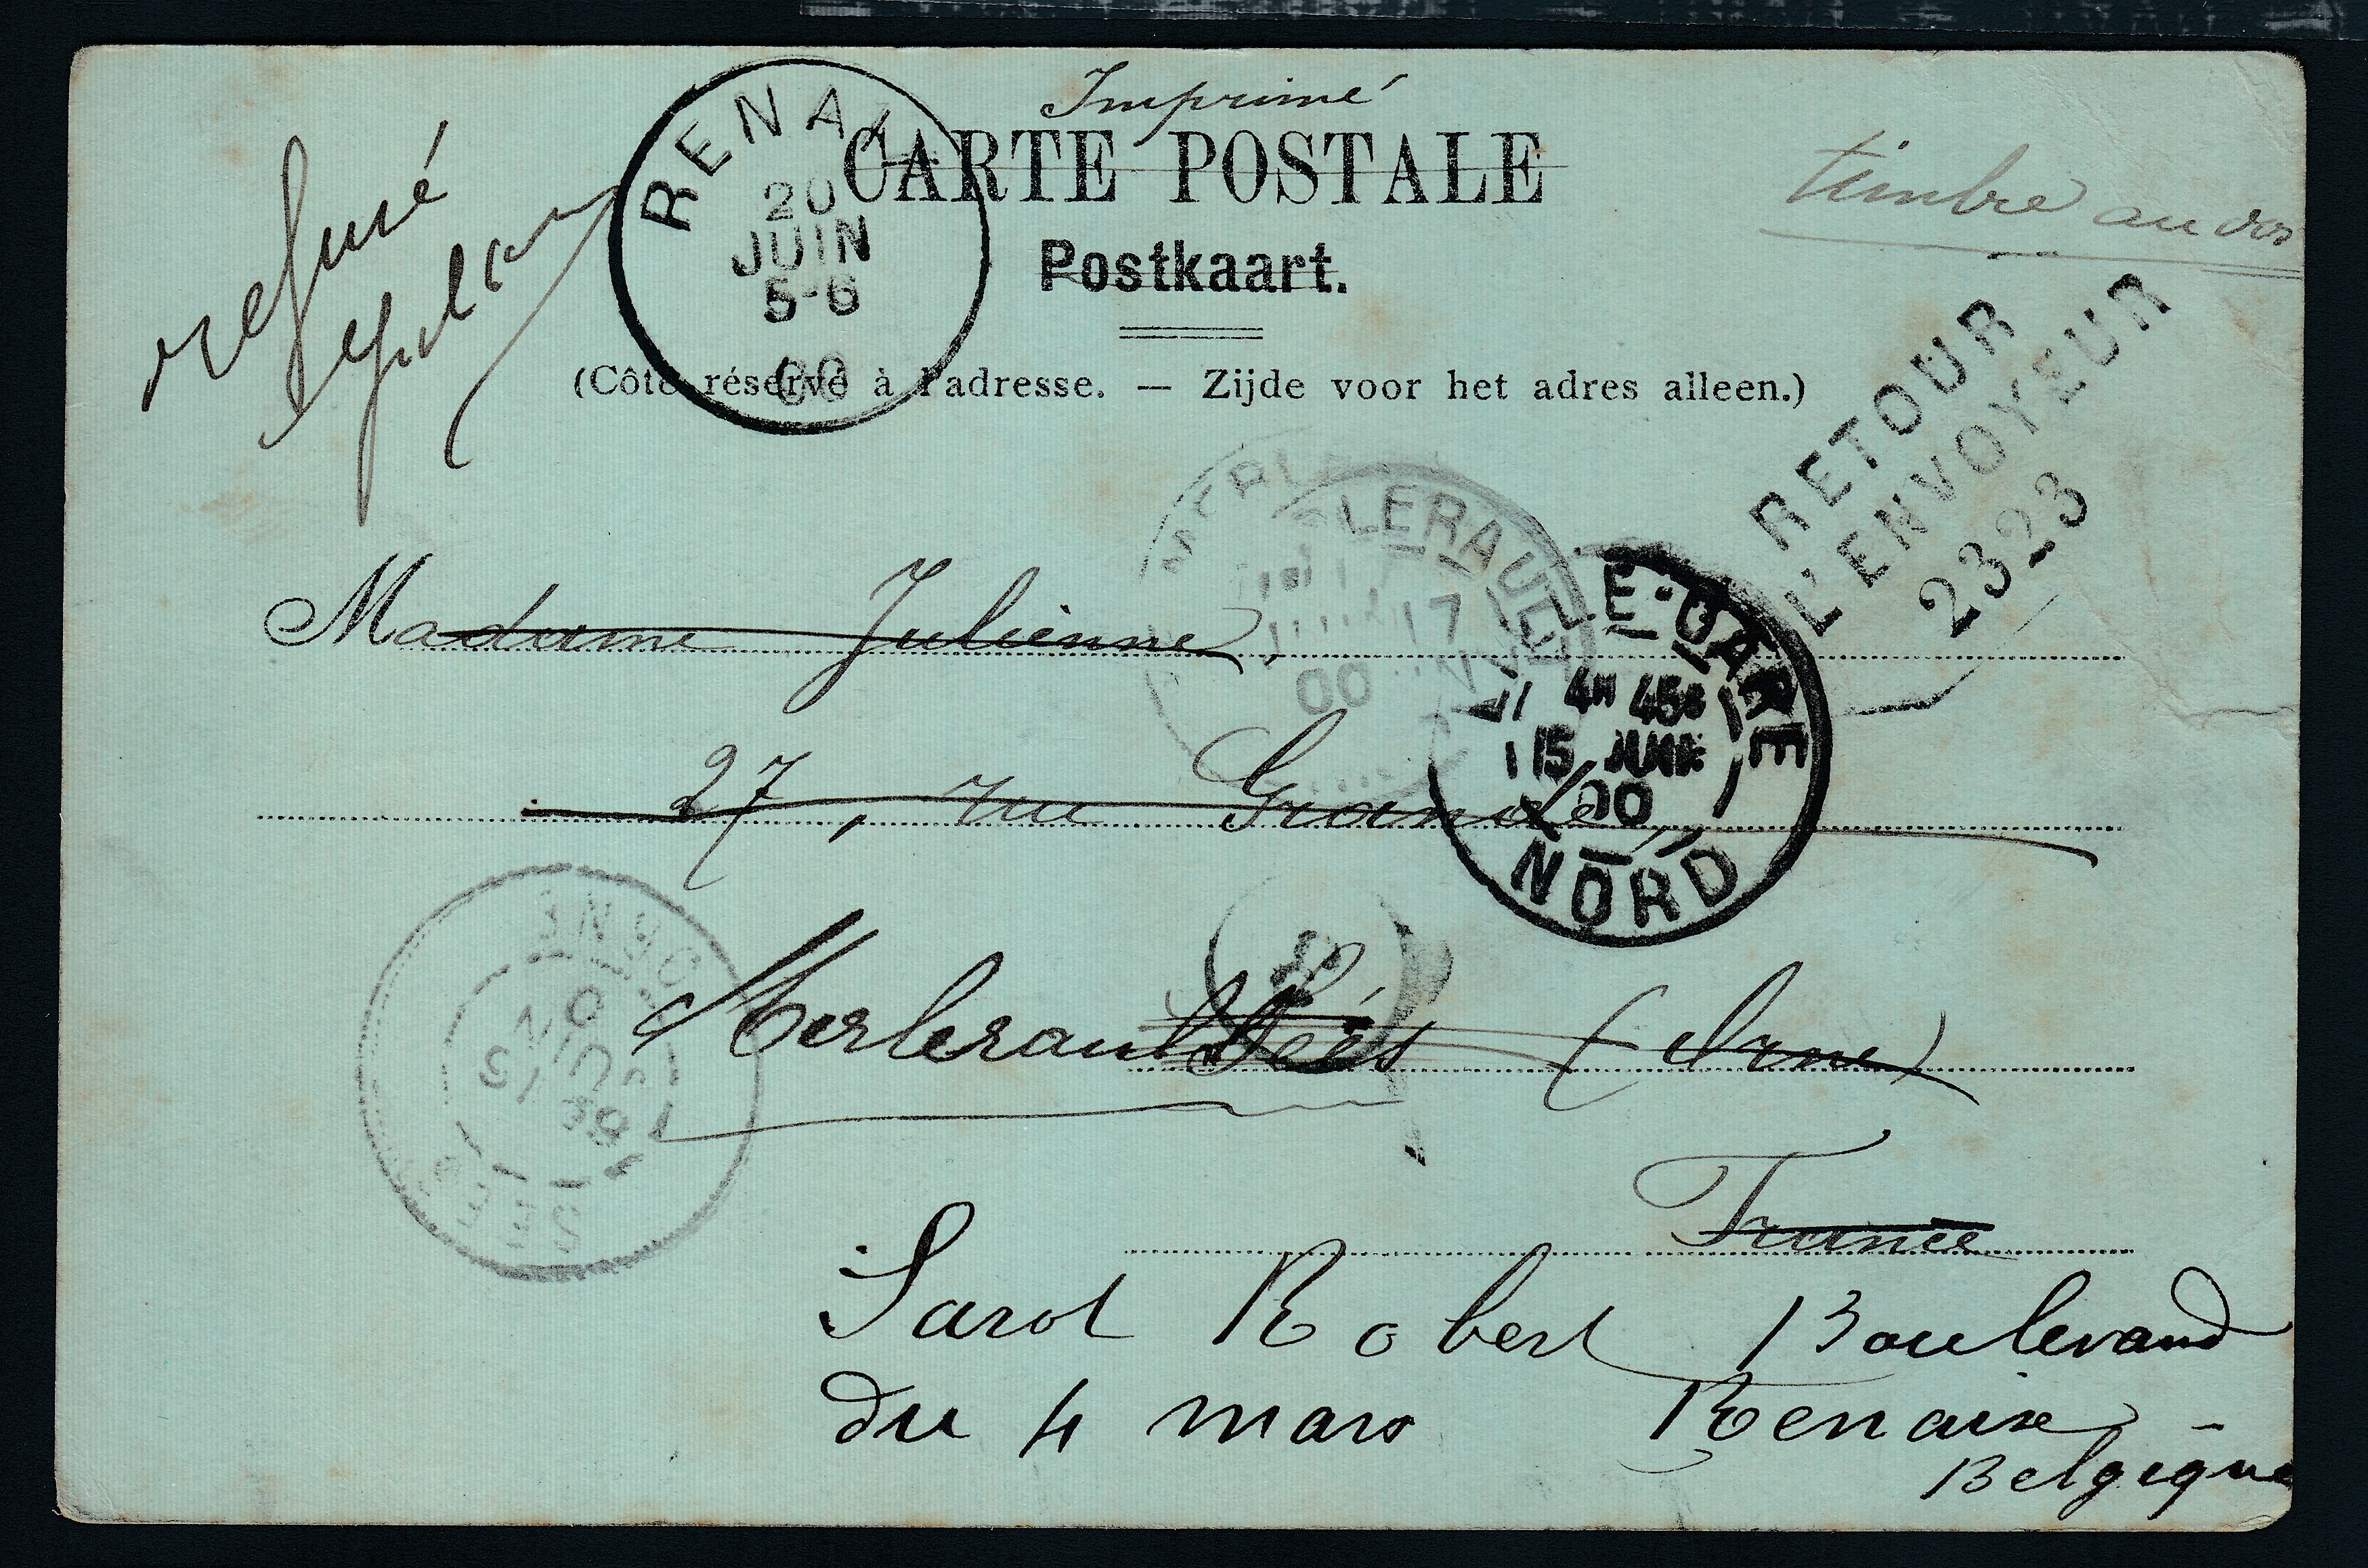 Imprimé
CARTE POSTALE
Postkaart.
(Côté réservé à l'adresse. — Zijde voor het adres alleen.)
refusé
timbre au dos
RENAI
20
JUIN
5-6
00
RETOUR
L'ENVOYEUR
2323
LERAU
17
00
Madame Julienne,
LE-GARE
4H 45
15 JUIN
00
NORD
27, rue Grande,
Merlerault Sées (Orne)
ORNE
JUIN
SEES
France
Sarot Robert Boulevard
du 4 mars Renaix -
Belgique